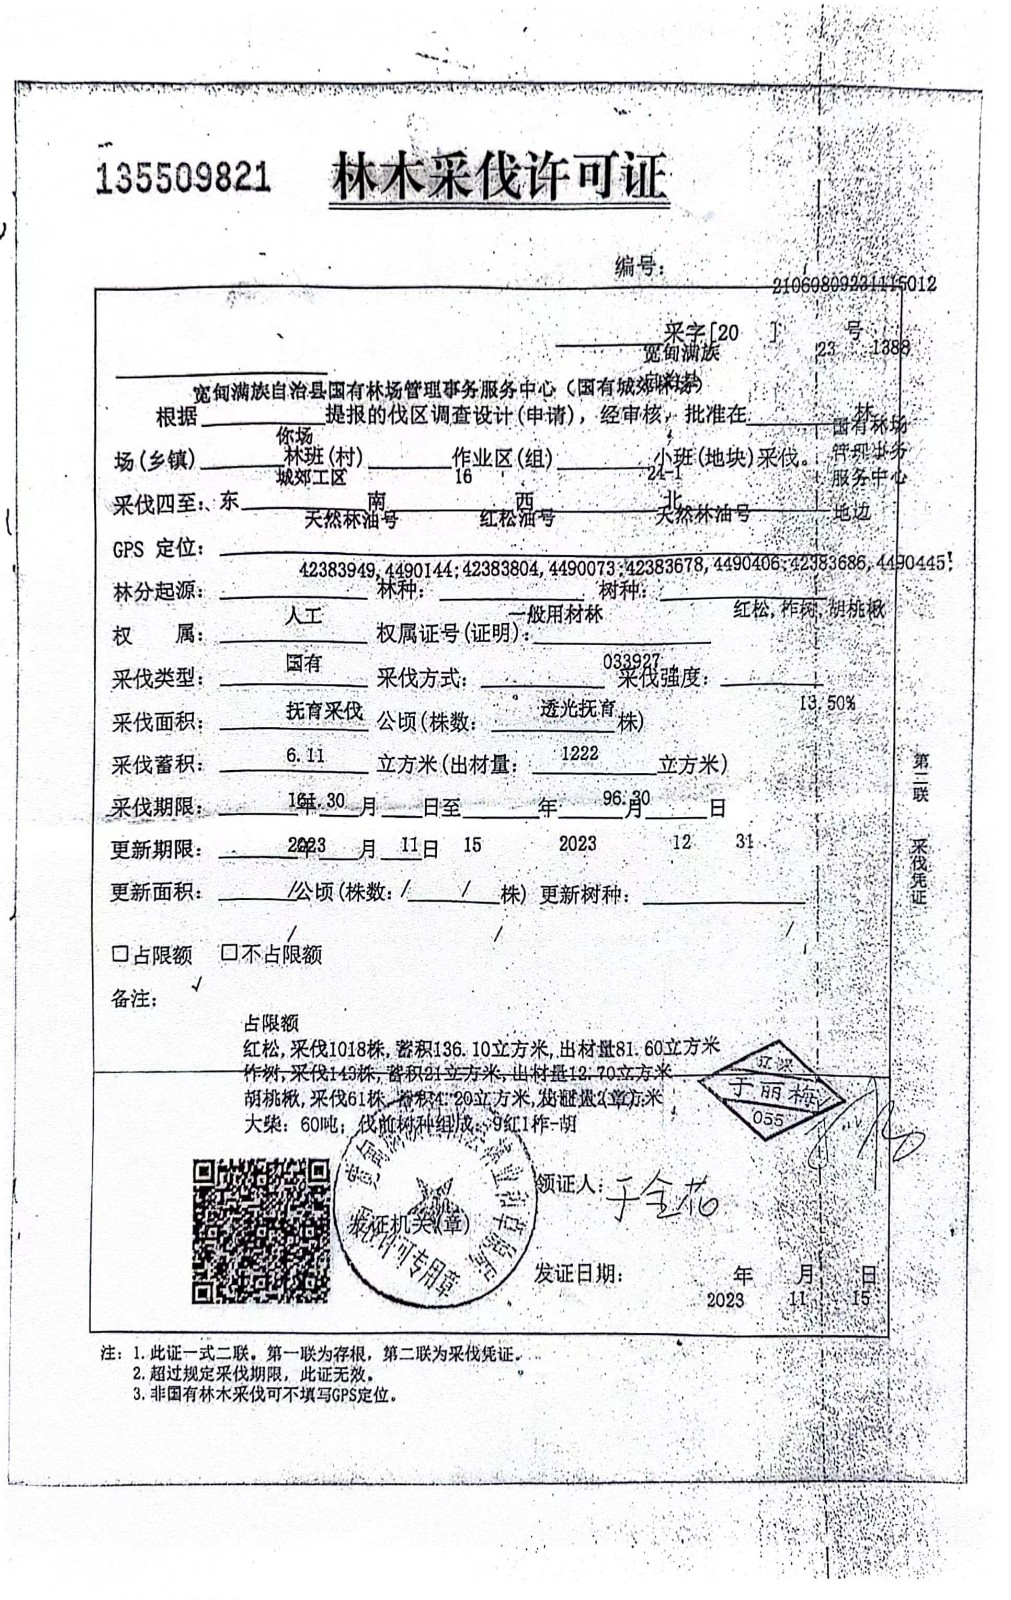 135509821
林木采伐许可证
编号:
21060809231115012
采字[20 ] 号
宽甸满族
23 1388
宽甸满族自治县国有林场管理事务服务中心(国有城郊林场)
根据 提报的伐区调查设计(申请),经审核,批准在 林
你场
国有林场
场(乡镇) 林班(村) 作业区(组) 小班(地块)采伐。
管理事务
城郊工区 16 24-1
服务中心
采伐四至:、东 南 西 北
天然林油号 红松油号 天然林油号 地边
GPS 定位:
42383949,4490144;42383804,4490073;42383678,4490406;42383686,4490445!
林分起源: 林种: 树种:
人工 一般用材林 红松,柞树,胡桃楸
权 属: 权属证号(证明):
国有 033927
采伐类型: 采伐方式: 采伐强度:
抚育采伐 透光抚育 13.50%
采伐面积: 公顷(株数: 株)
6.11 1222
采伐蓄积: 立方米(出材量: 立方米)
161.30 96.30
采伐期限: 年 月 日至 年 月 日
2023 11 15 2023 12 31
更新期限: 年 月 日
/ / /
更新面积: 公顷(株数: 株) 更新树种:
/ / /
□占限额 □不占限额
√
备注:
占限额
红松,采伐1018株,蓄积136.10立方米,出材量81.60立方米
柞树,采伐143株,蓄积21立方米,出材量12.70立方米
胡桃楸,采伐61株,蓄积4.20立方米,出材量2立方米
大柴: 60吨; 伐前树种组成: 9红1柞-胡
于丽梅
055
领证人: 于金花
发证机关(章)
可专用章
发证日期: 年 月 日
2023 11 15
注: 1.此证一式二联。第一联为存根,第二联为采伐凭证。
2.超过规定采伐期限,此证无效。
3.非国有林木采伐可不填写GPS定位。
第二联 采伐凭证